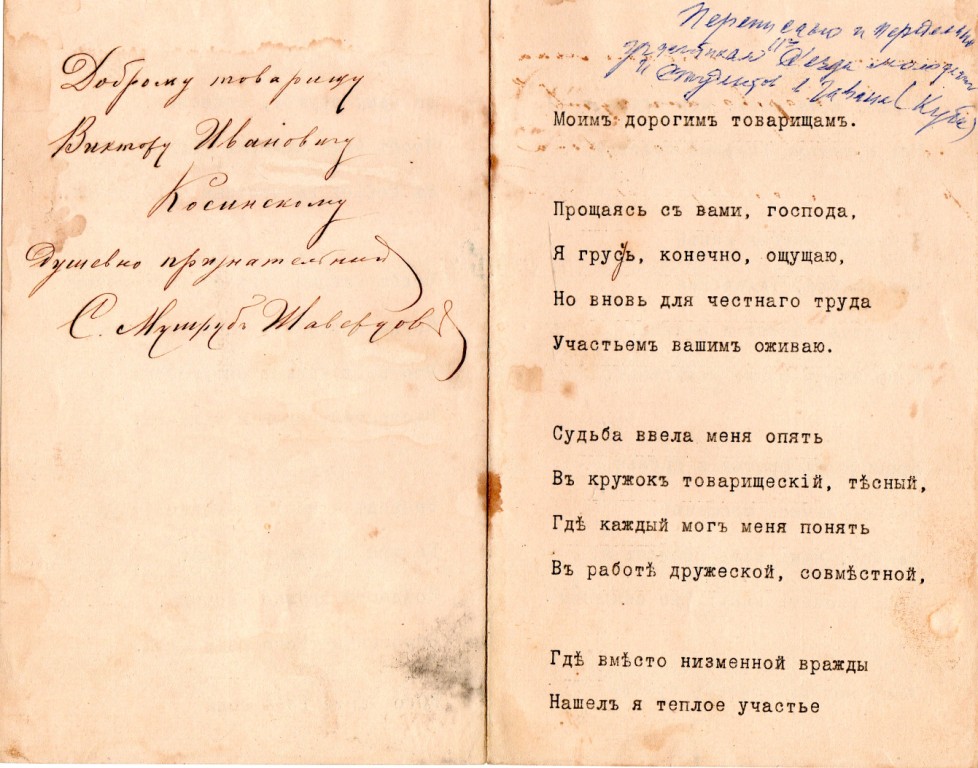 Доброму товарищу
Виктору Ивановичу
Косинскому
Душевно признательный
С. Мушрубъ Шавердовъ
Переписано и передано
делегатам 11го съезда молодежи
и студентов в Гаване (Кубе)
Моимъ дорогимъ товарищамъ.
Прощаясь съ вами, господа,
Я грусь, конечно, ощущаю,
Но вновь для честнаго труда
Участьемъ вашимъ оживаю.
Судьба ввела меня опять
Въ кружокъ товарищескій, тѣсный,
Гдѣ каждый могъ меня понять
Въ работѣ дружеской, совмѣстной,
Гдѣ вмѣсто низменной вражды
Нашелъ я теплое участье